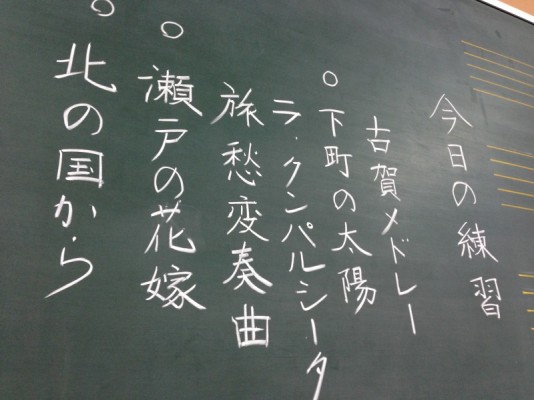 今日の練習
古賀メドレー
○下町の太陽
ラ・クンパルシータ
旅愁変奏曲
○瀬戸の花嫁
○北の国から